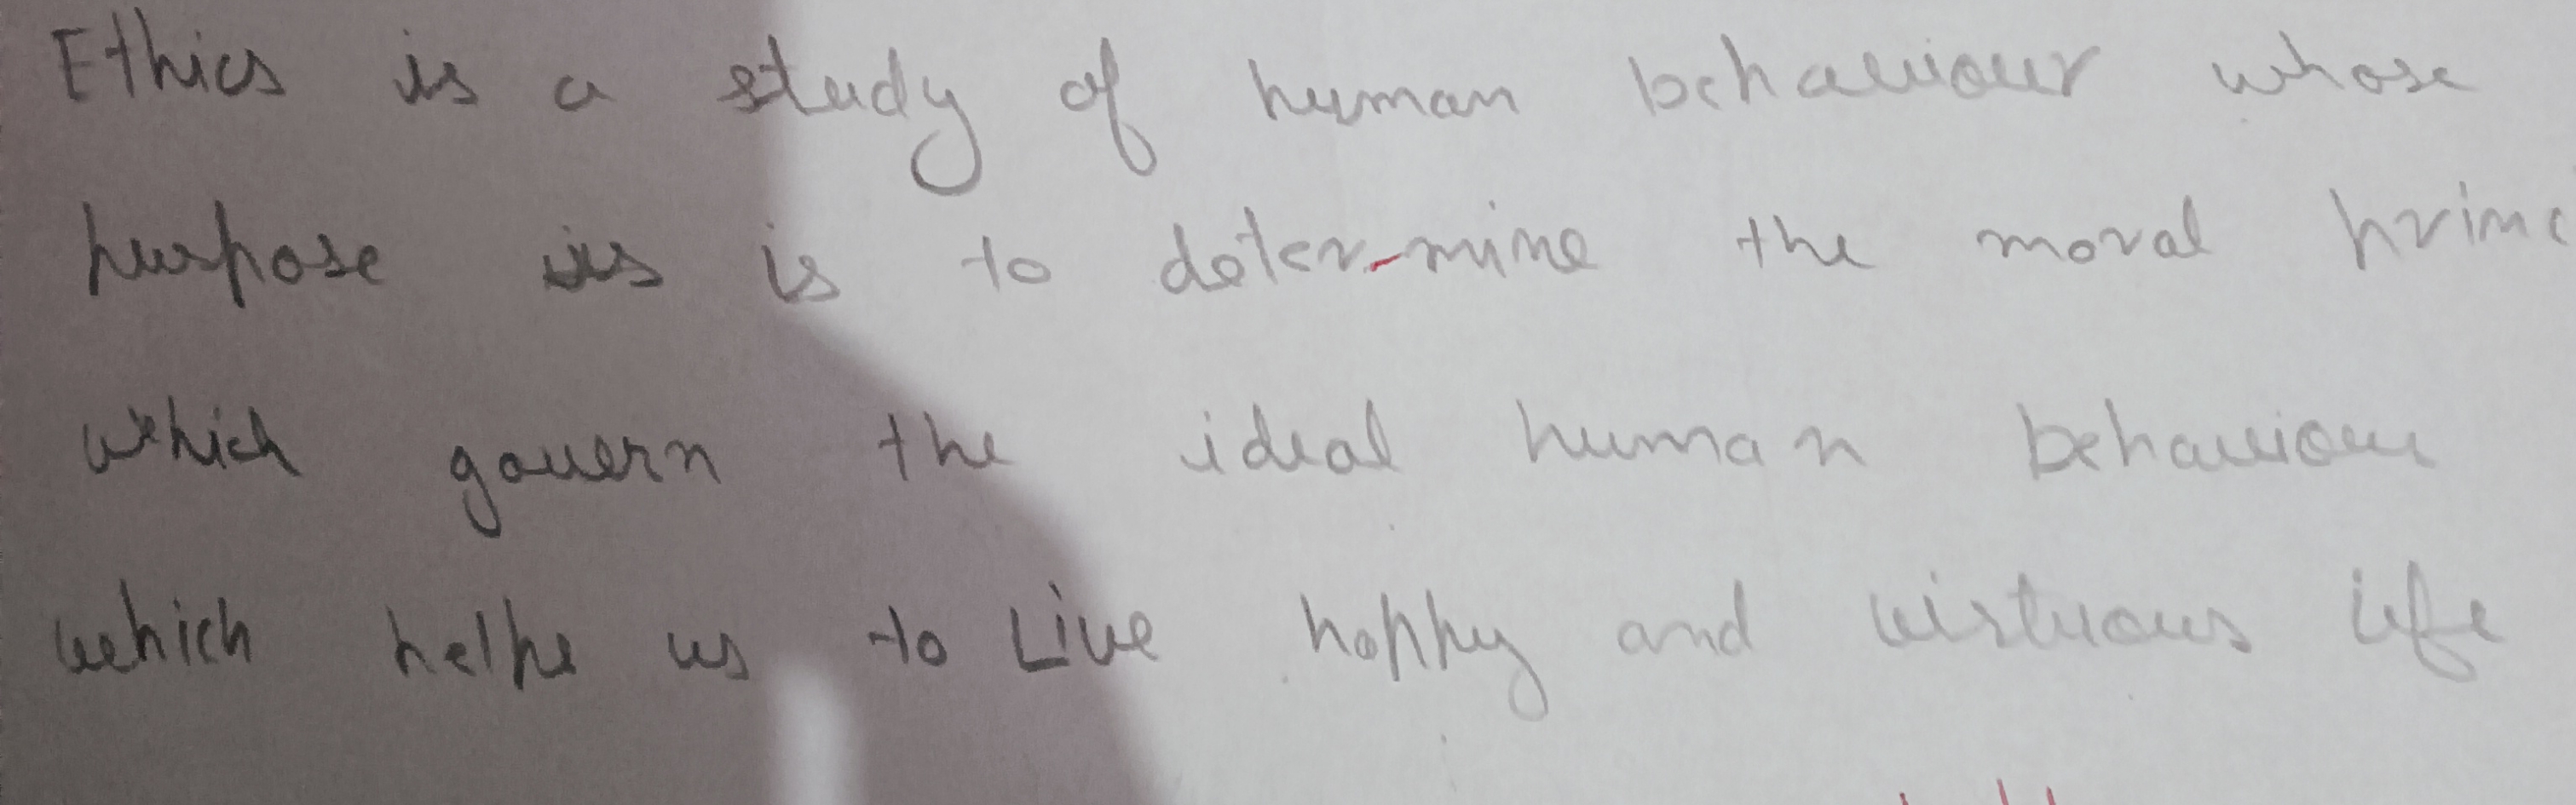 Ethics is a study of human behaviour whose
purpose is is to deter-mine the moral princ
which govern the ideal human behaviour
which helps us to Live happy and virtuous life